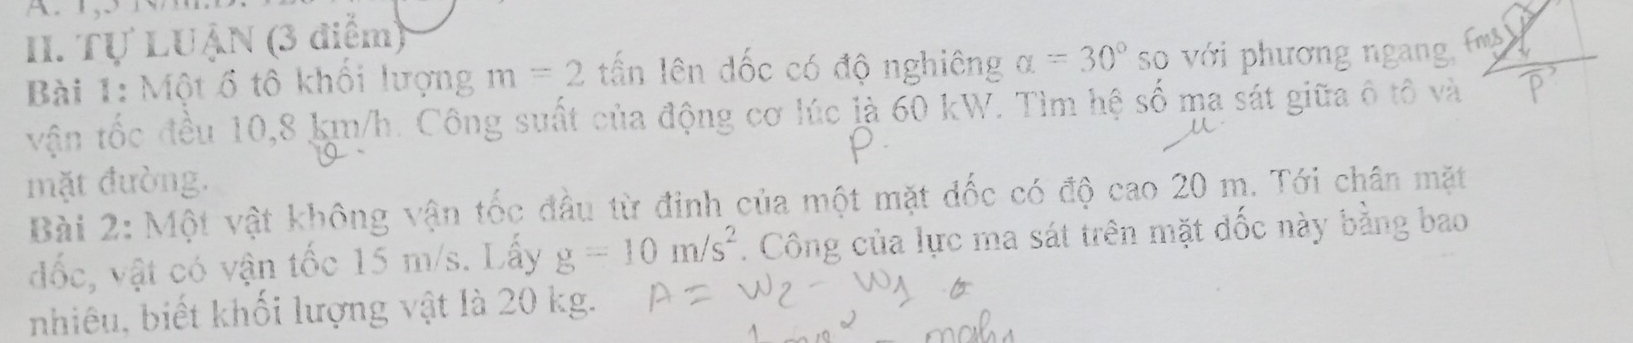 II. TỰ LUẬN (3 điểm)
Bài 1: Một ô tô khối lượng m = 2 tấn lên dốc có độ nghiêng α = 30° so với phương ngang, Fms
vận tốc đều 10,8 km/h. Công suất của động cơ lúc là 60 kW. Tìm hệ số ma sát giữa ô tô và
P
μ
P
mặt đường.
Bài 2: Một vật không vận tốc đầu từ đỉnh của một mặt dốc có độ cao 20 m. Tới chân mặt
dốc, vật có vận tốc 15 m/s. Lấy g = 10 m/s². Công của lực ma sát trên mặt dốc này bằng bao
nhiêu, biết khối lượng vật là 20 kg. A = W2 - W1